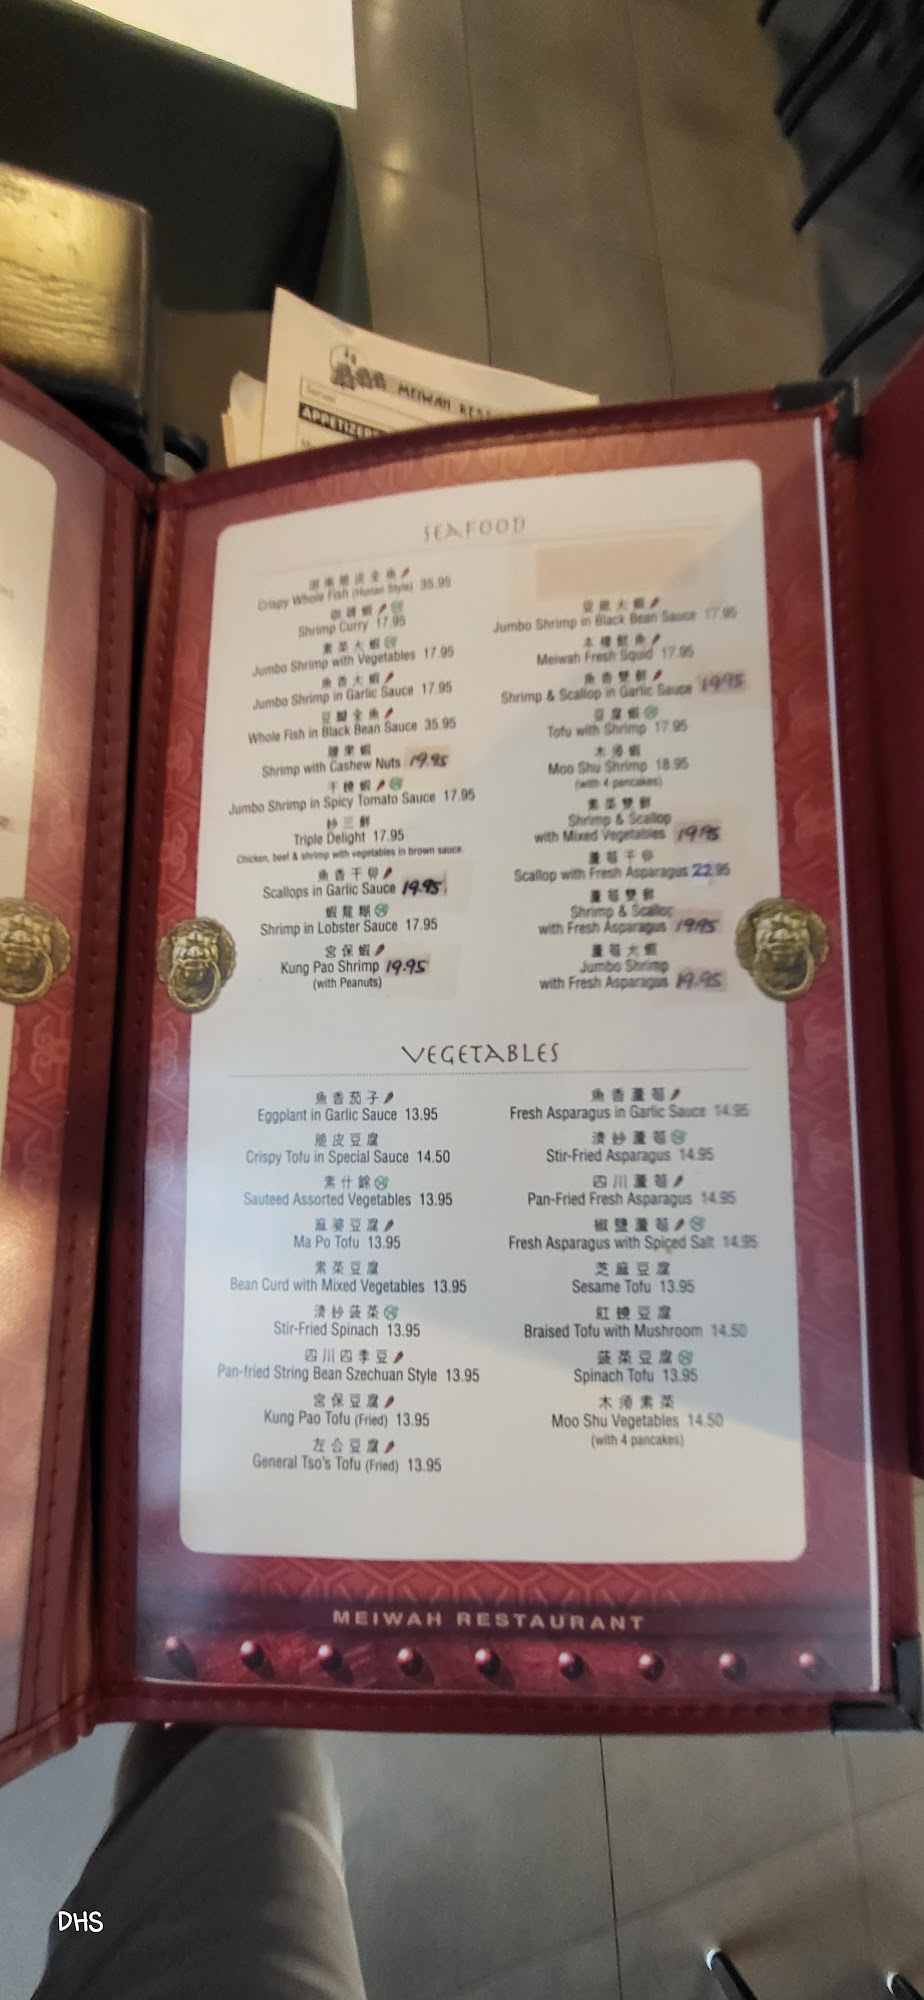 MEIWAH
APPETIZERS
SEAFOOD
Crispy Whole Fish (Hunan Style) 35.95
咖喱蝦
Shrimp Curry 17.95
素菜大蝦
Jumbo Shrimp with Vegetables 17.95
魚香大蝦
Jumbo Shrimp in Garlic Sauce 17.95
豆瓣全魚
Whole Fish in Black Bean Sauce 35.95
腰果蝦
Shrimp with Cashew Nuts 19.95
干燒蝦
Jumbo Shrimp in Spicy Tomato Sauce 17.95
炒三鮮
Triple Delight 17.95
Chicken, beef & shrimp with vegetables in brown sauce
魚香干貝
Scallops in Garlic Sauce 19.95
蝦龍糊
Shrimp in Lobster Sauce 17.95
宮保蝦
Kung Pao Shrimp 19.95
(with Peanuts)
豆豉大蝦
Jumbo Shrimp in Black Bean Sauce 17.95
本樓鮮魚
Meiwah Fresh Squid 17.95
魚香雙鮮
Shrimp & Scallop in Garlic Sauce 19.95
豆腐蝦
Tofu with Shrimp 17.95
木須蝦
Moo Shu Shrimp 18.95
(with 4 pancakes)
素菜雙鮮
Shrimp & Scallop
with Mixed Vegetables 19.95
蘆筍干貝
Scallop with Fresh Asparagus 22.95
蘆筍雙鮮
Shrimp & Scallop
with Fresh Asparagus 19.95
蘆筍大蝦
Jumbo Shrimp
with Fresh Asparagus 19.95
VEGETABLES
魚香茄子
Eggplant in Garlic Sauce 13.95
脆皮豆腐
Crispy Tofu in Special Sauce 14.50
素什錦
Sauteed Assorted Vegetables 13.95
麻婆豆腐
Ma Po Tofu 13.95
素菜豆腐
Bean Curd with Mixed Vegetables 13.95
清炒菠菜
Stir-Fried Spinach 13.95
四川四季豆
Pan-fried String Bean Szechuan Style 13.95
宮保豆腐
Kung Pao Tofu (Fried) 13.95
左公豆腐
General Tso's Tofu (Fried) 13.95
魚香蘆筍
Fresh Asparagus in Garlic Sauce 14.95
清炒蘆筍
Stir-Fried Asparagus 14.95
四川蘆筍
Pan-Fried Fresh Asparagus 14.95
椒鹽蘆筍
Fresh Asparagus with Spiced Salt 14.95
芝麻豆腐
Sesame Tofu 13.95
紅燒豆腐
Braised Tofu with Mushroom 14.50
菠菜豆腐
Spinach Tofu 13.95
木須素菜
Moo Shu Vegetables 14.50
(with 4 pancakes)
MEIWAH RESTAURANT
DHS